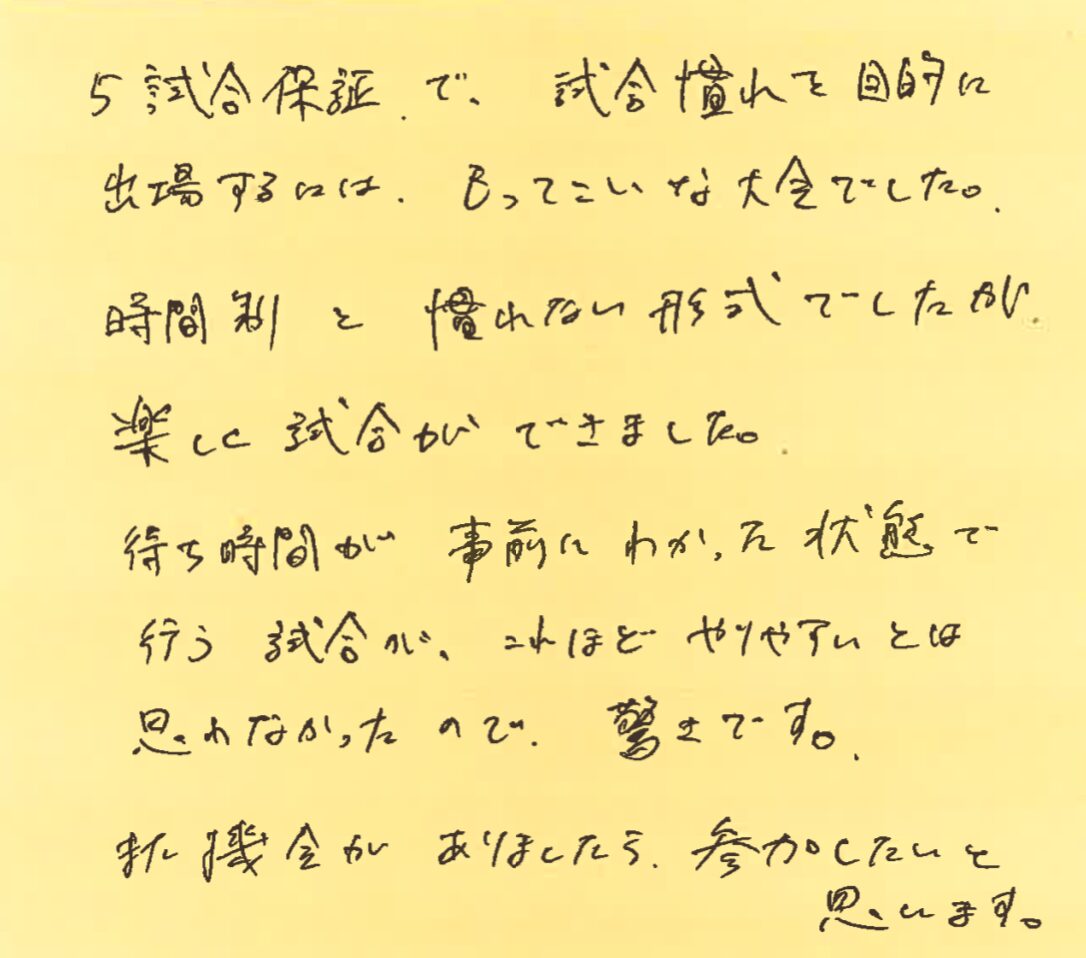 5試合保証で、試合慣れを目的に
出場するには、もってこいな大会でした。
時間制と慣れない形式でしたが、
楽しく試合ができました。
待ち時間が事前にわかった状態で
行う試合が、これほどやりやすいとは
思わなかったので、驚きです。
また機会がありましたら、参加したいと
思います。